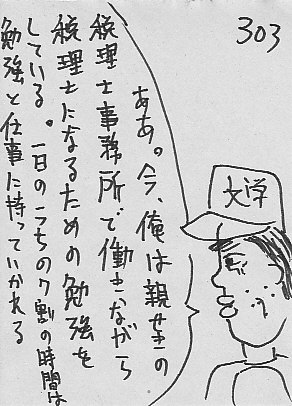 303
ああ。今、俺は親せきの
税理士事務所で働きながら
税理士になるための勉強を
している。一日のうちの7割の時間は
勉強と仕事に持っていかれる
文学